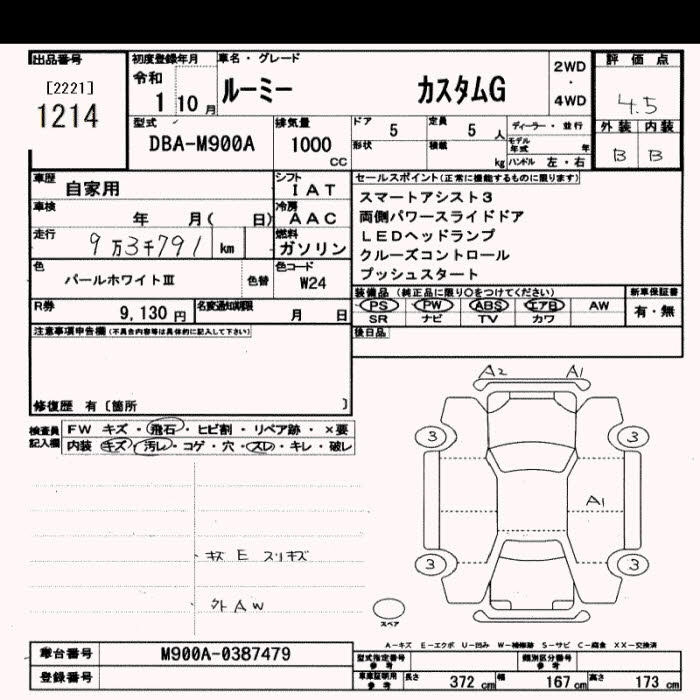 出品番号
[2221]
1214
初度登録年月
令和
1 10 月
車名・グレード
ルーミー カスタムG
2WD
・
4WD
評価点
4.5
外装 内装
B B
型式
DBA-M900A
排気量
1000
CC
ドア 5
定員 5 人
形状
積載 kg
ディーラー・並行
モデル年式 年
ハンドル 左・右
車歴 自家用
車検 年 月( 日)
走行 9万3千791 km
色 パールホワイトⅢ 色替
シフト
IAT
冷房
AAC
燃料
ガソリン
色コード
W24
R券 9,130 円
名変通知期限 月 日
セールスポイント(正常に機能するものに限ります)
スマートアシスト3
両側パワースライドドア
LEDヘッドランプ
クルーズコントロール
プッシュスタート
装備品(純正品に限り○をつけてください)
PS PW ABS エアB AW
SR ナビ TV カワ
新車保証書
有・無
後日品
注意事項申告欄(不具合内容等は具体的に記入して下さい)
修復歴 有〔箇所 〕
検査員記入欄
FW キズ・飛石・ヒビ割・リペア跡・×要
内装 キズ・汚レ・コゲ・穴・スレ・キレ・破レ
キズ E スリキズ
外AW
A2 A1
3 3
A1
3 3
スペア
A-キズ E-エクボ U-凹み W-補修跡 S-サビ C-腐食 XX-交換済
車台番号 M900A-0387479
登録番号
型式指定番号
参考
類別区分番号
参考
車庫証明用
参考
長さ 372 cm 幅 167 cm 高さ 173 cm